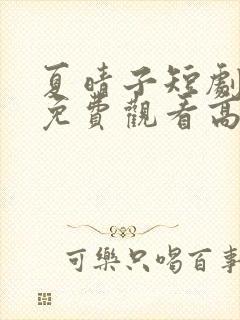 夏晴子短劇
免費觀看高
可樂只喝百事